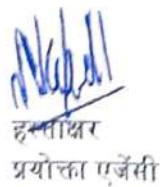 हस्ताक्षर
प्रयोक्ता एजेंसी